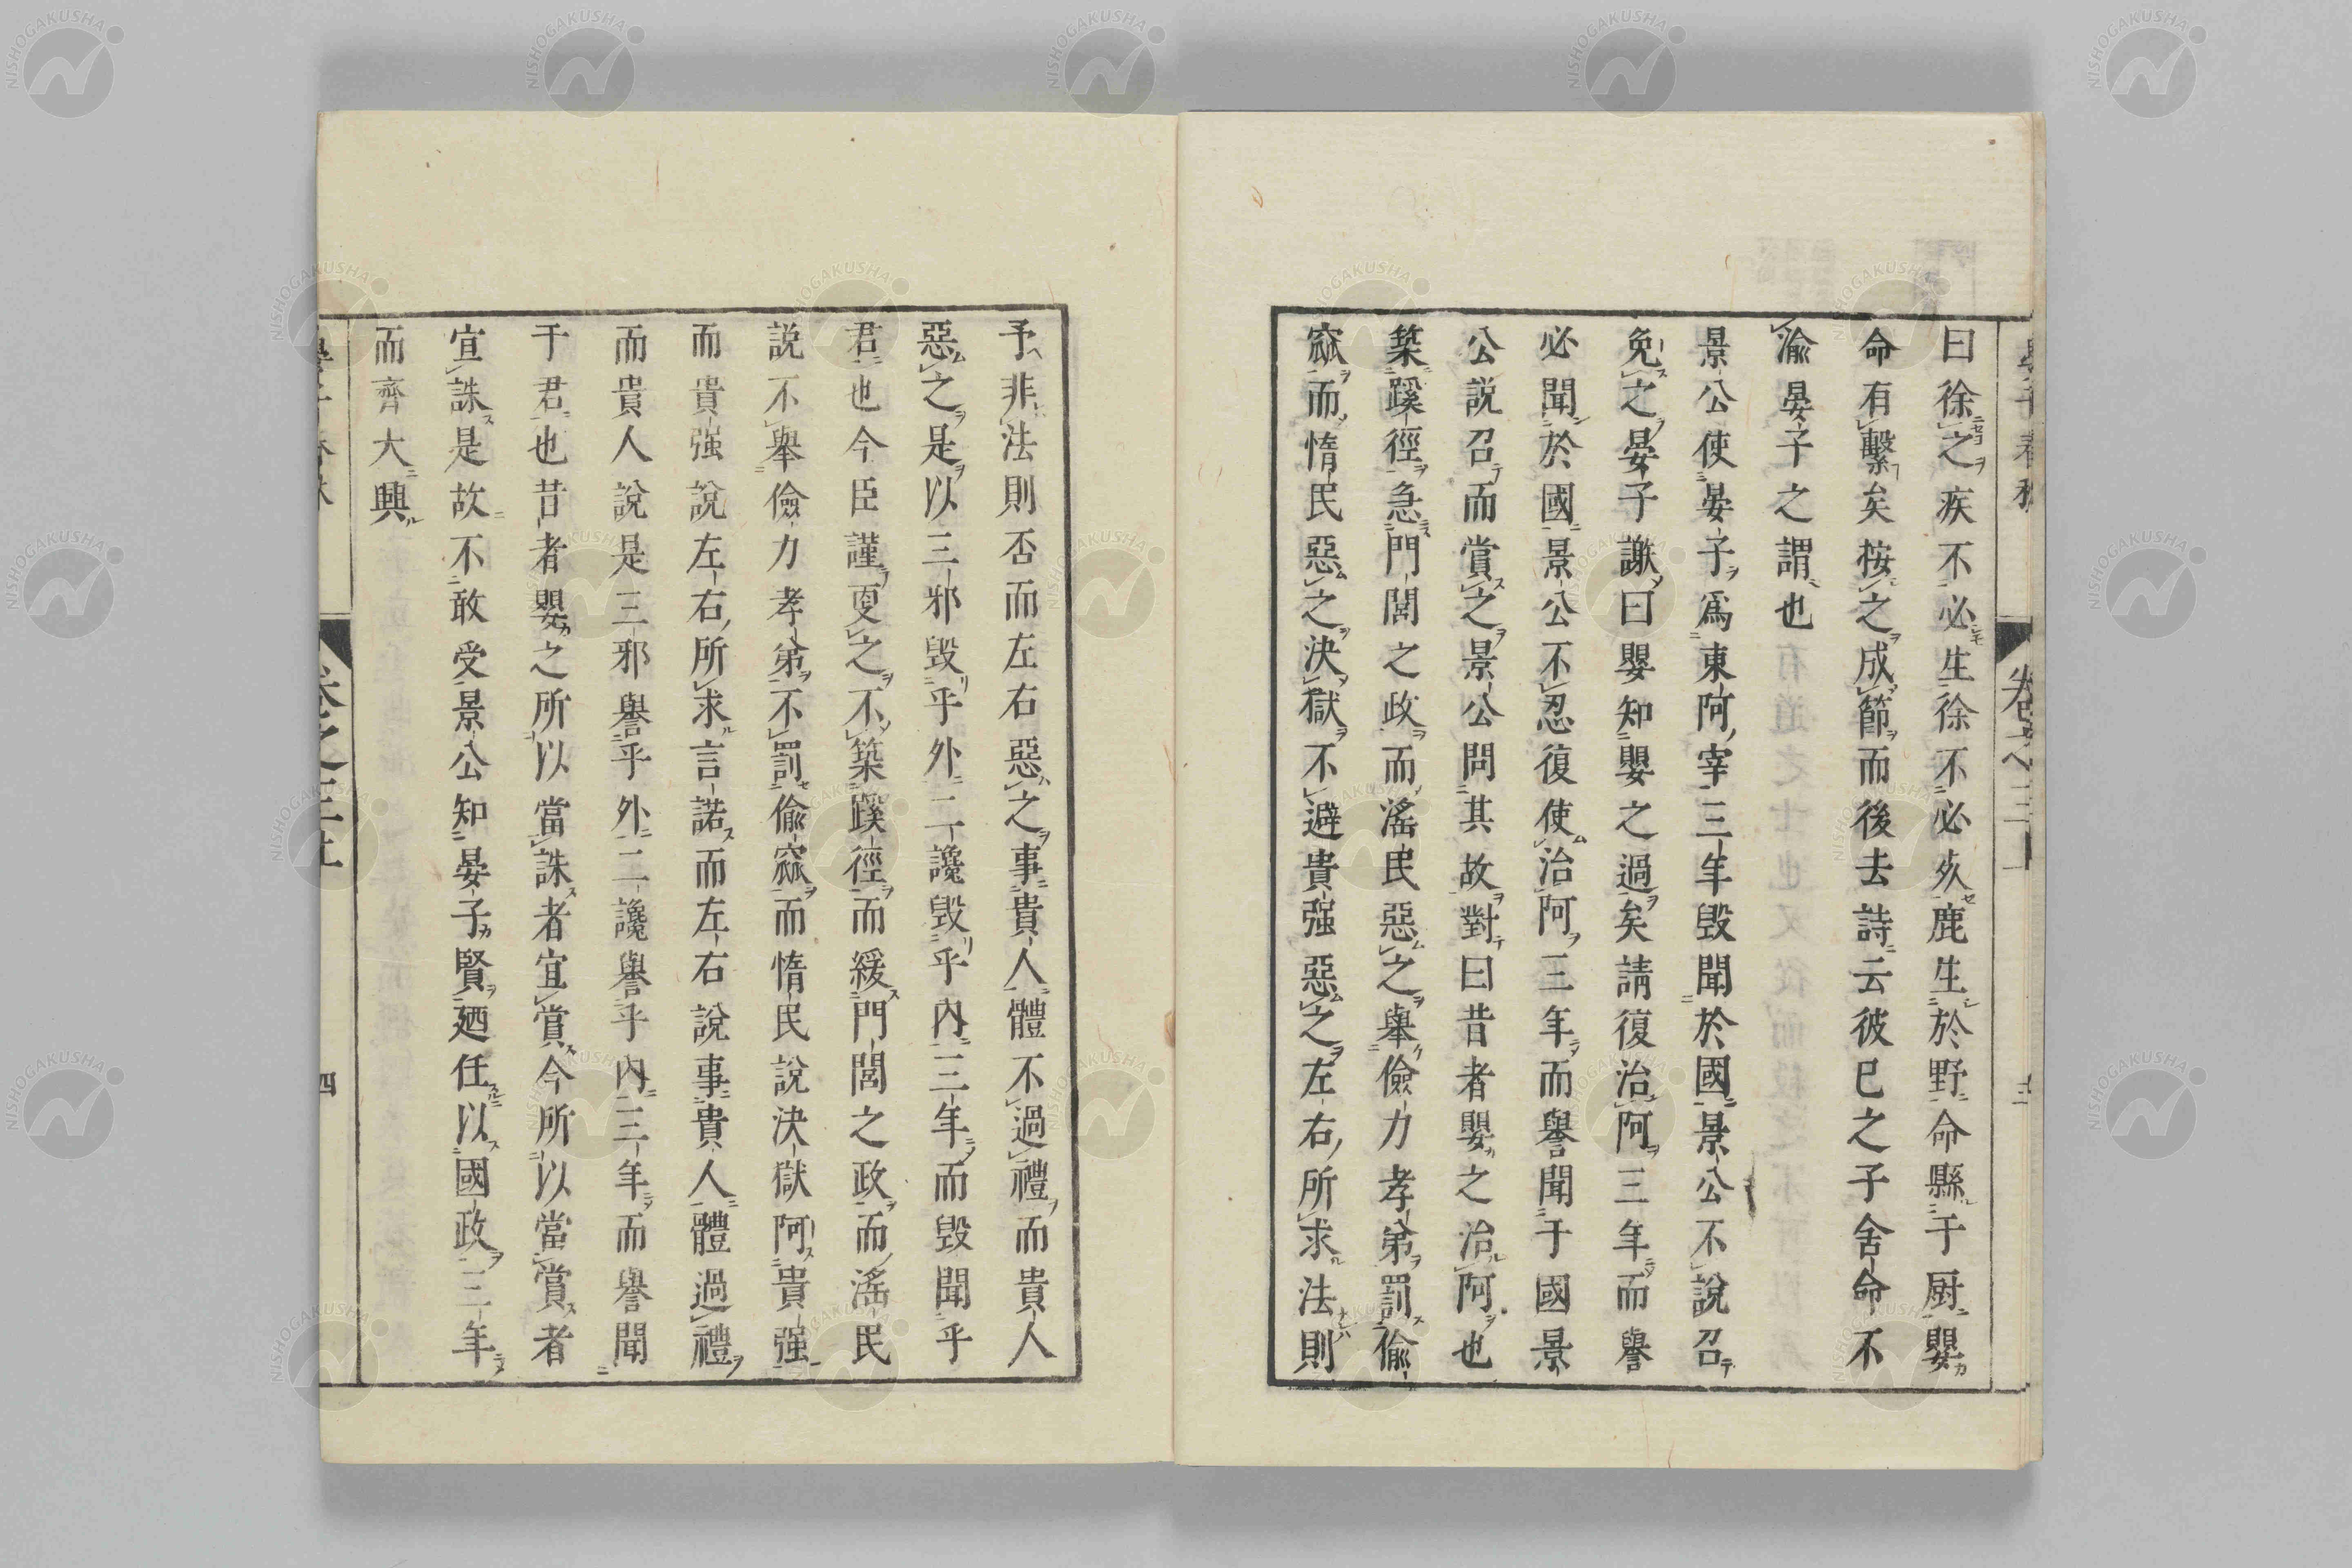 曰徐之疾不必生徐不必死鹿生於野命縣于厨嬰
命有繫矣按之成節而後去詩云彼已之子舍命不
渝晏子之謂也
景公使晏子爲東阿宰三年毀聞於國景公不說召
免之晏子謝曰嬰知嬰之過矣請復治阿三年而譽
必聞於國景公不忍復使治阿三年而譽聞于國景
公説召而賞之景公問其故對曰昔者嬰之治阿也
築蹊徑急門閭之政而滛民惡之舉儉力孝弟罰偷
窳而惰民惡之決獄不避貴强惡之左右所求法則
予非法則否而左右惡之事貴人體不過禮而貴人
惡之是以三邪毀乎外二讒毀乎内三年而毀聞乎
君也今臣謹更之不築蹊徑而緩門閭之政而滛民
説不舉儉力孝弟不罰偷窳而惰民說決獄阿貴强
而貴强說左右所求言諾而左右說事貴人體過禮
而貴人說是三邪譽乎外二讒譽乎内三年而譽聞
于君也昔者嬰之所以當誅者宜賞今所以當賞者
宜誅是故不敢受景公知晏子賢廼任以國政三年
而齊大興
卷之三
四
NISHOGAKUSHA